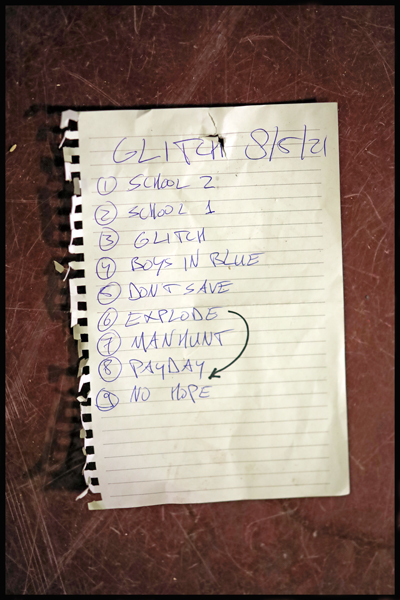 GLITCH 8/5/21
① SCHOOL 2
② SCHOOL 1
③ GLITCH
④ BOYS IN BLUE
⑤ DONT SAVE
⑥ EXPLODE
⑦ MANHUNT
⑧ PAYDAY
⑨ NO HOPE